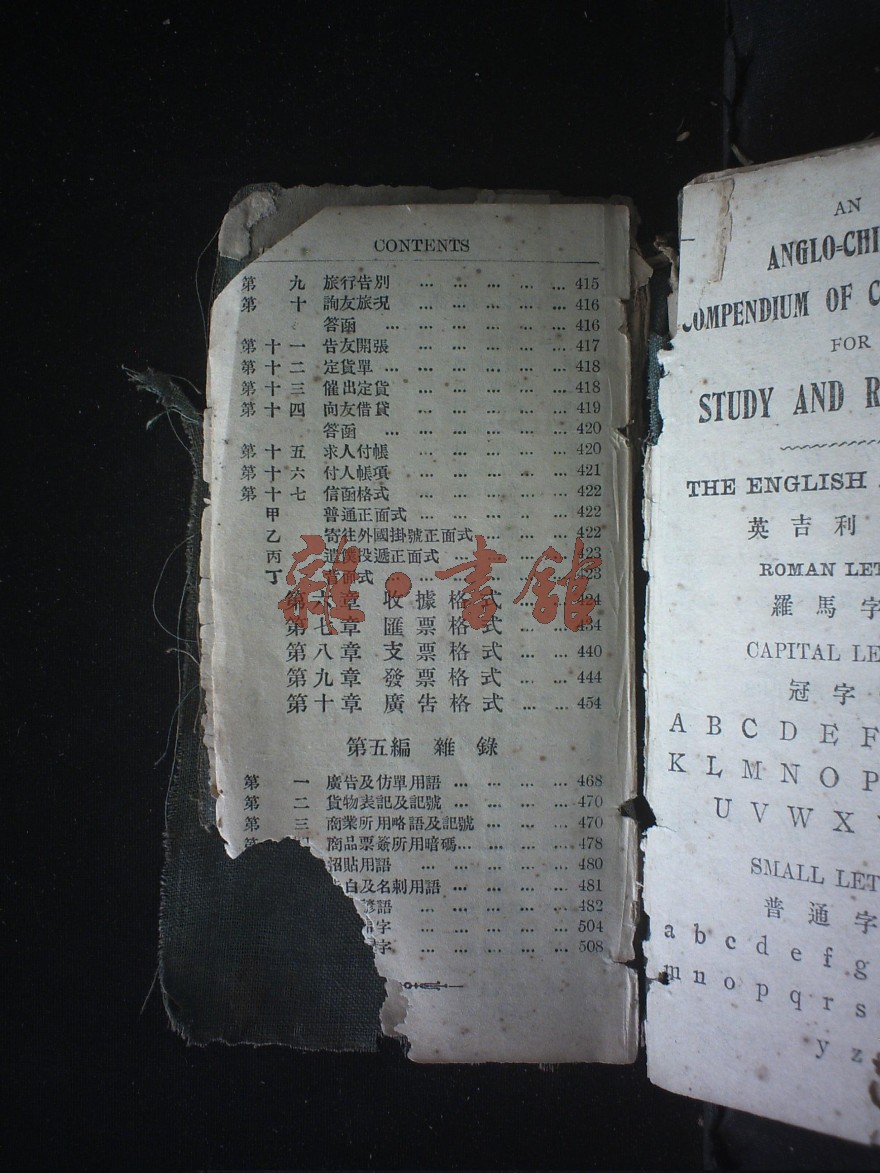 CONTENTS
第九 旅行告別 … … … … … 415
第十 詢友旅況 … … … … … 416
答函 … … … … … … 416
第十一 告友開張 … … … … … 417
第十二 定貨單 … … … … … 418
第十三 催出定貨 … … … … … 418
第十四 向友借貸 … … … … … 419
答函 … … … … … … 420
第十五 求人付帳 … … … … … 420
第十六 付人帳項 … … … … … 421
第十七 信函格式 … … … … … 422
甲 普通正面式 … … … … … 422
乙 寄往外國掛號正面式 … … … … 422
丙 遣僕投遞正面式 … … … … 423
丁 背面式 … … … … … 423
第六章 收據格式 … … 424
第七章 匯票格式 … … 434
第八章 支票格式 … … 440
第九章 發票格式 … … 444
第十章 廣告格式 … … 454
第五編 雜錄
第一 廣告及仿單用語 … … … … 468
第二 貨物表記及記號 … … … … 470
第三 商業所用略語及記號 … … … 470
商品票簽所用暗碼 … … … … 478
招貼用語 … … … … … 480
白及名刺用語 … … … … 481
諺語 … … … … … 482
字 … … … … … 504
字 … … … … … 508
龍·書館
AN
ANGLO=CHI
COMPENDIUM OF C
FOR
STUDY AND R
THE ENGLISH
英吉利
ROMAN LET
羅馬字
CAPITAL LE
冠字
A B C D E F
K L M N O P
U V W X
SMALL LET
普通字
a b c d e f g
m n o p q r s
y z